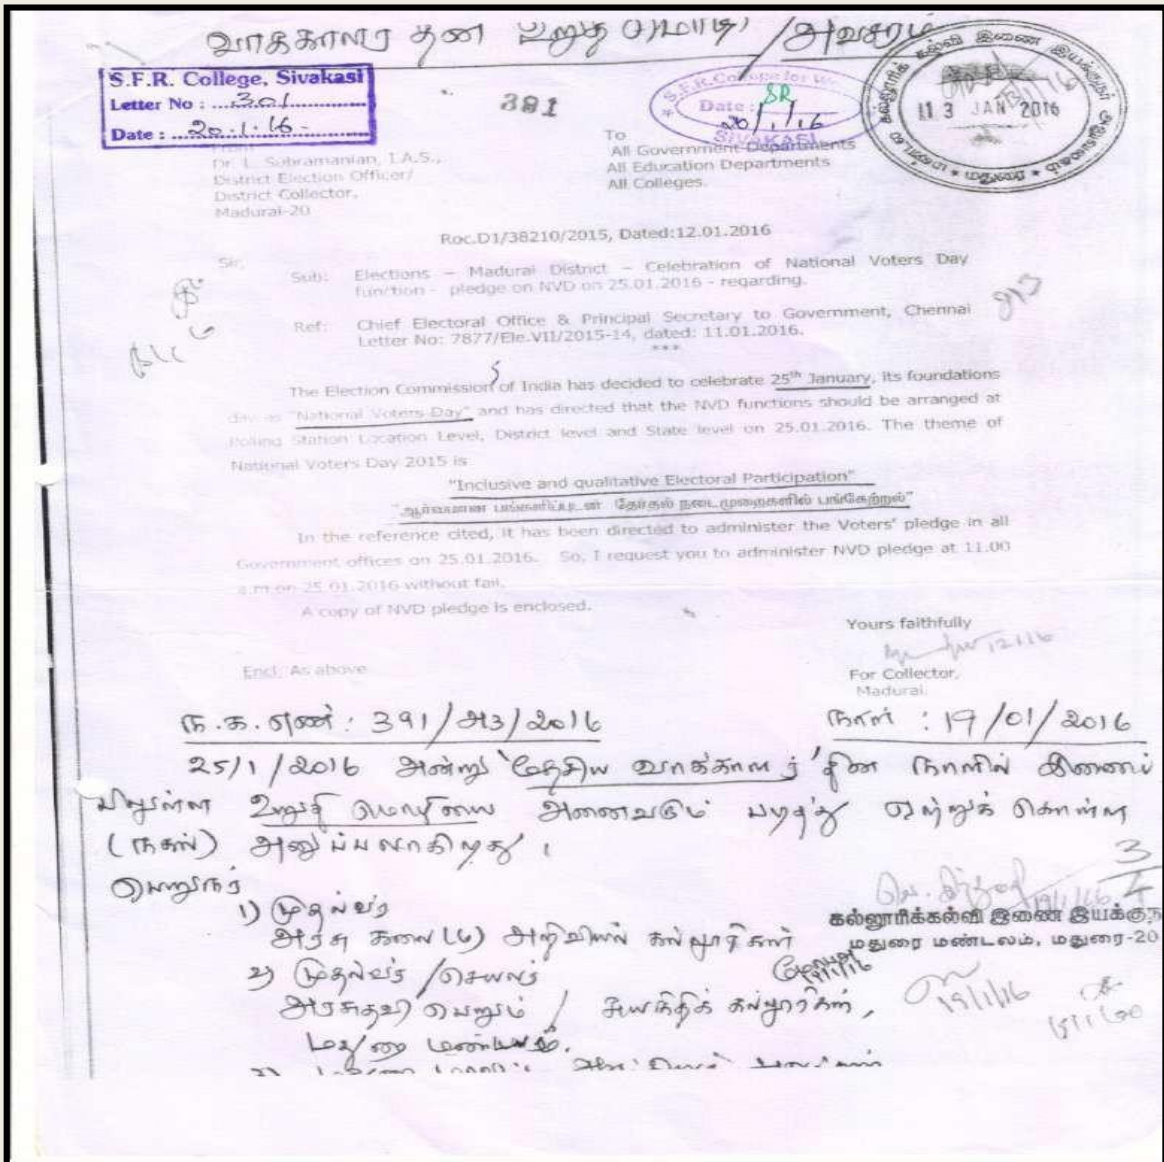 வாக்காளர் தின உறுதி மொழி / அவசரம்
S.F.R. College, Sivakasi
Letter No : 301
Date : 20.1.16
391
S.F.R. College for
Date :
SR
20/1/16
SIVAKASI
கல்லூரிக் கல்வி இணை இயக்குநர் அலுவலகம்
13 JAN 2016
மதுரை
From
Dr. L. Subramanian, I.A.S.,
District Election Officer/
District Collector,
Madurai-20
To
All Government Departments
All Education Departments
All Colleges.
Roc.D1/38210/2015, Dated:12.01.2016
Sir,
Sub: Elections – Madurai District – Celebration of National Voters Day
function - pledge on NVD on 25.01.2016 - regarding.
Ref: Chief Electoral Office & Principal Secretary to Government, Chennai
Letter No: 7877/Ele.VII/2015-14, dated: 11.01.2016.
***
The Election Commission of India has decided to celebrate 25th January, its foundations
day as "National Voters Day" and has directed that the NVD functions should be arranged at
Polling Station Location Level, District level and State level on 25.01.2016. The theme of
National Voters Day 2015 is
"Inclusive and qualitative Electoral Participation"
"ஆர்வமான பங்களிப்புடன் தேர்தல் நடைமுறைகளில் பங்கேற்றல்"
In the reference cited, it has been directed to administer the Voters' pledge in all
Government offices on 25.01.2016. So, I request you to administer NVD pledge at 11.00
a.m on 25.01.2016 without fail.
A copy of NVD pledge is enclosed.
Yours faithfully
12/1/16
Encl: As above
For Collector,
Madurai.
ந.க.எண் : 391/அ3/2016
நாள் : 19/01/2016
25/1/2016 அன்று 'தேசிய வாக்காளர்' தின நாளில் இணைப்
பிலுள்ள உறுதி மொழியை அனைவரும் படித்து ஏற்றுக் கொள்ள
(நகல்) அனுப்பலாகிறது.
பெறுநர்
3/4
1) முதல்வர்
அரசு கலை (ம) அறிவியல் கல்லூரிகள்
கல்லூரிக்கல்வி இணை இயக்குந
மதுரை மண்டலம், மதுரை-20
2) முதல்வர் / செயலர்
19/1/16
அரசுதவி பெறும் / சுயநிதிக் கல்லூரிகள்,
19/1/16
மதுரை மண்டலம்.